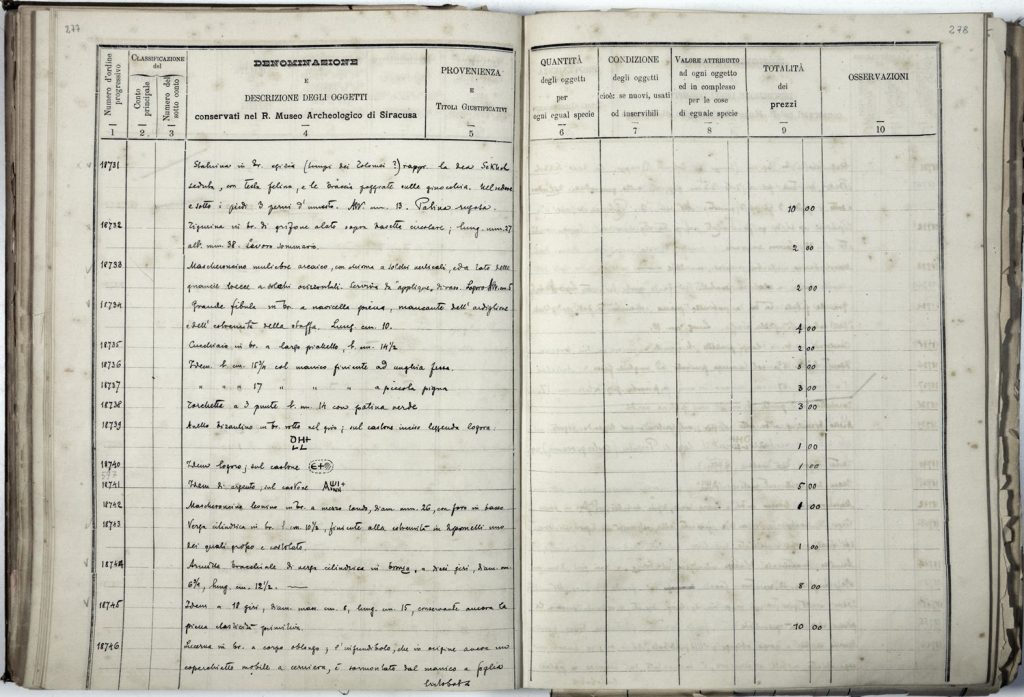 277
278
Numero d'ordine progressivo
CLASSIFICAZIONE del
Conto principale
Numero del sotto conto
DENOMINAZIONE
E
DESCRIZIONE DEGLI OGGETTI
conservati nel R. Museo Archeologico di Siracusa
PROVENIENZA
E
TITOLI GIUSTIFICATIVI
QUANTITÀ
degli oggetti
per
ogni egual specie
CONDIZIONE
degli oggetti
cioè: se nuovi, usati
od inservibili
VALORE ATTRIBUITO
ad ogni oggetto
ed in complesso
per le cose
di eguale specie
TOTALITÀ
dei
prezzi
OSSERVAZIONI
1 2. 3 4 5 6 7 8 9 10
18731 Statuina in br. egizia (tempi dei Tolomei ?) rappr. la dea Sekhet
seduta, con testa felina, e le braccia poggiate sulle ginocchia. Nel sedere
e sotto i piedi 3 perni d'innesto. Alt. mm. 13. Patina rugosa. 10 00
18732 Figurina in br. di grifone alato sopra basetta circolare; lung. mm. 37
alt. mm. 38. Lavoro sommario. 2 00
18733 Mascheroncino muliebre arcaico, con chioma a solchi verticali, ed a lato delle
guancie a solchi orizzontali. Serviva da applique di vaso. Logoro 2 00
18734 Grande fibula in br. a navicella piena, mancante dell'ardiglione
e dell'estremità della staffa. Lung. cm. 10. 4 00
18735 Cucchiaio in br. a largo piattello, l. cm. 14½ 2 00
18736 Idem l. cm. col manico finiente ad unghia fessa. 3 00
18737 " " " 17 " " " a piccola pigna 3 00
18738 Forchetta a 3 punte l. cm. 14 con patina verde 3 00
18739 Anello bizantino in br. rotto nel giro; sul castone inciso leggenda logora
1 00
18740 Idem logoro; sul castone 1 00
18741 Idem di argento, sul castone 5 00
18742 Mascheroncino leonino in br. a mezzo tondo, diam. mm. 26, con foro in basso 1 00
18743 Verga cilindrica in br. l. cm. 10½, finiente alla estremità in due
dei quali grosso e costolato. 1 00
18744 Armilla bracchiale di verga cilindrica in bronzo, a dieci giri, diam. cm.
6¾, lung. cm. 12½. 8 00
18745 Idem a 18 giri, diam. mass. cm. 8, lung. cm. 15, conservante ancora la
piena elasticità primitiva. 10 00
18746 Lucerna in br. a corpo oblungo; l'infundibolo, che in origine aveva un
coperchietto mobile a cerniera, è sormontato dal manico a foglia